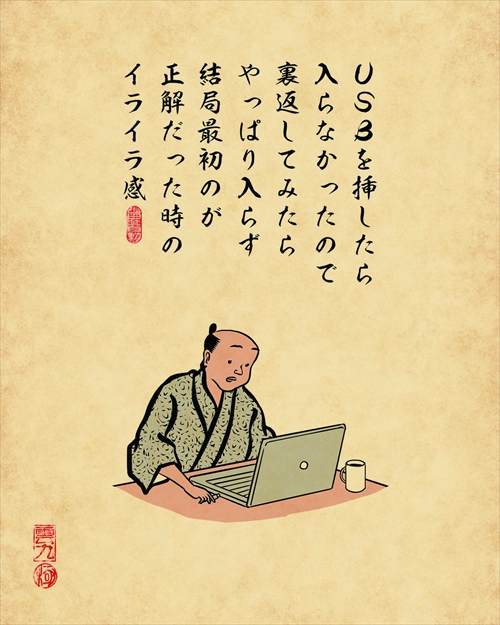 USBを挿したら
入らなかったので
裏返してみたら
やっぱり入らず
結局最初のが
正解だった時の
イライラ感